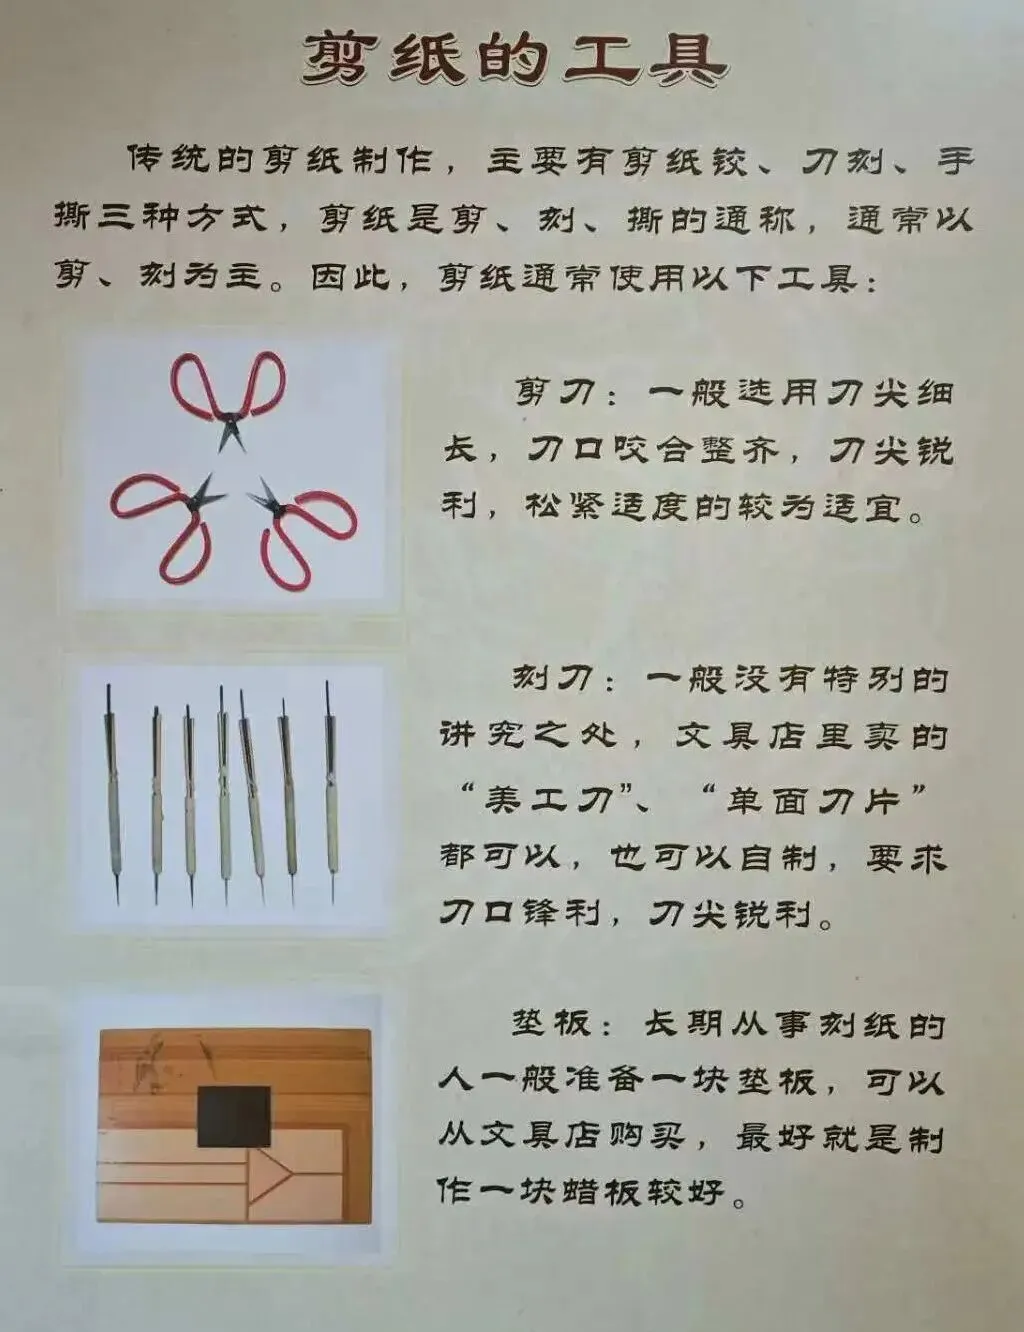 剪纸的工具
传统的剪纸制作，主要有剪纸铰、刀刻、手
撕三种方式，剪纸是剪、刻、撕的通称，通常以
剪、刻为主。因此，剪纸通常使用以下工具：
剪刀：一般选用刀尖细
长，刀口咬合整齐，刀尖锐
利，松紧适度的较为适宜。
刻刀：一般没有特别的
讲究之处，文具店里卖的
“美工刀”、“单面刀片”
都可以，也可以自制，要求
刀口锋利，刀尖锐利。
垫板：长期从事刻纸的
人一般准备一块垫板，可以
从文具店购买，最好就是制
作一块蜡板较好。